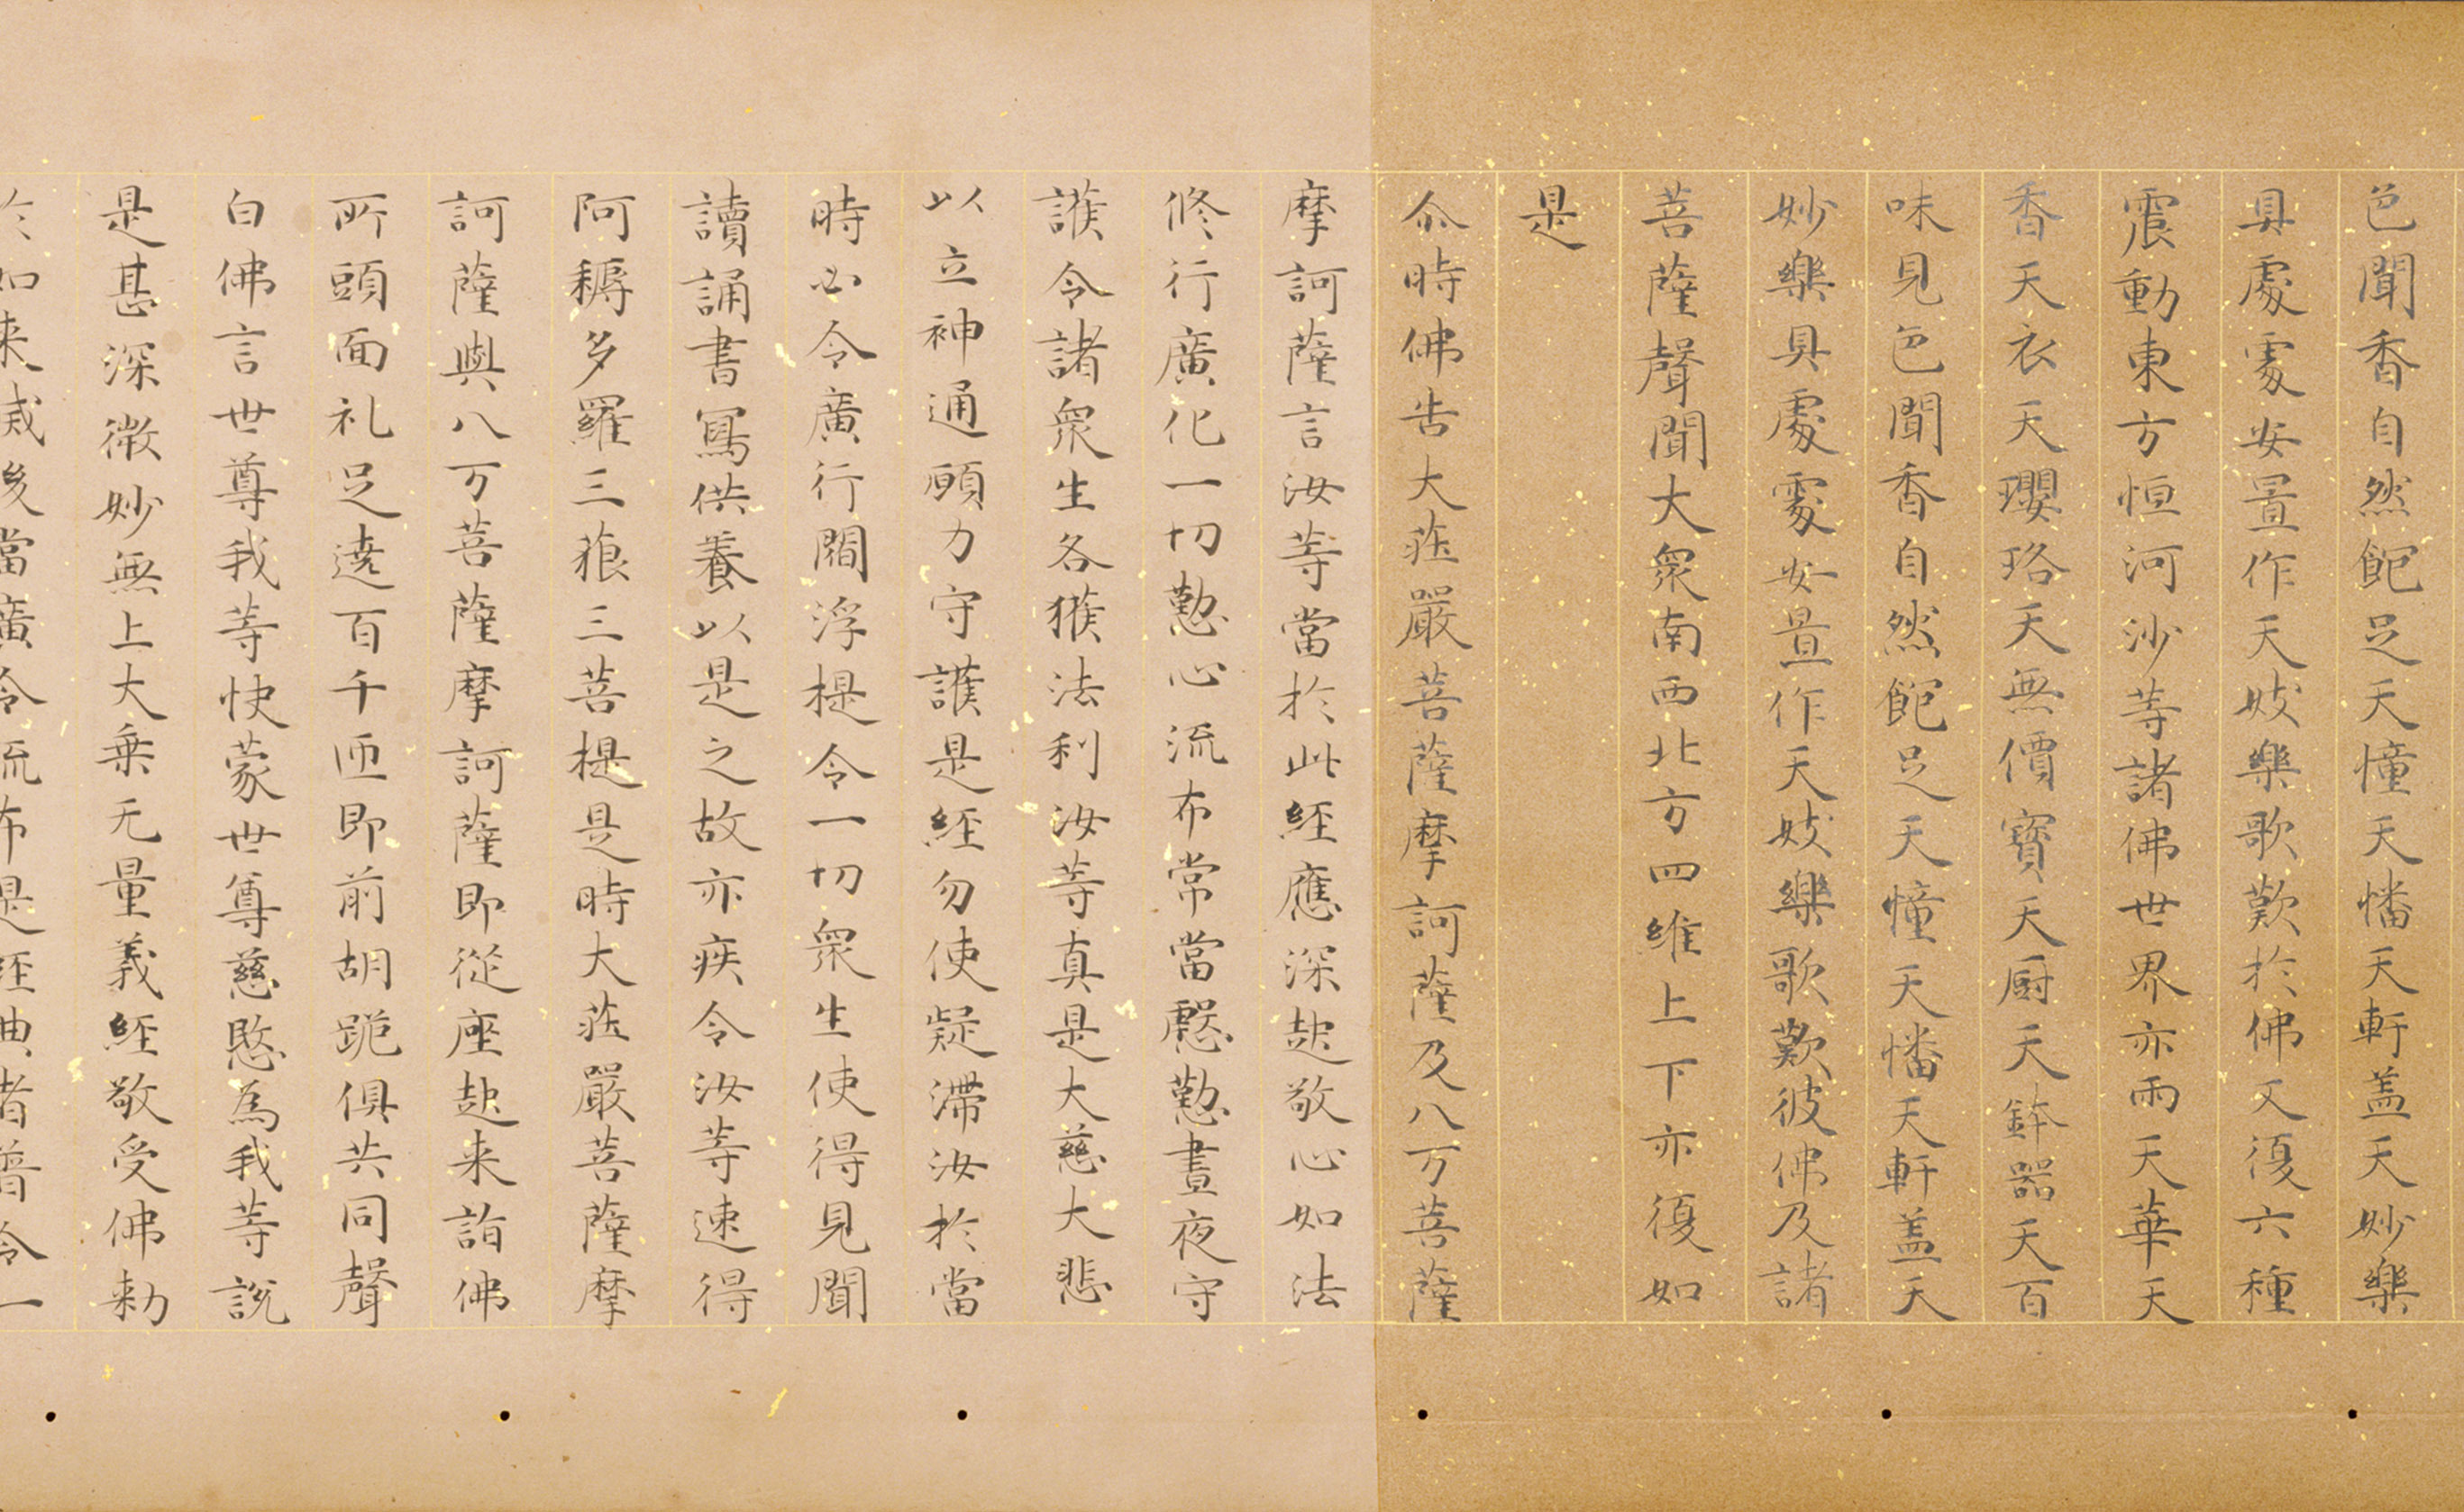 色聞香自然飽足天幢天幡天軒盖天妙樂
具處處安置作天妓樂歌歎於佛又復六種
震動東方恒河沙等諸佛世界亦雨天華天
香天衣天瓔珞天無價寶天厨天鉢器天百
味見色聞香自然飽足天幢天幡天軒盖天
妙樂具處處安置作天妓樂歌歎彼佛及諸
菩薩聲聞大衆南西北方四維上下亦復如
是
尒時佛告大莊嚴菩薩摩訶薩及八万菩薩
摩訶薩言汝等當於此經應深起敬心如法
修行廣化一切懃心流布常當慇懃晝夜守
護令諸衆生各獲法利汝等真是大慈大悲
以立神通願力守護是經勿使疑滯汝於當
時必令廣行閻浮提令一切衆生使得見聞
讀誦書寫供養以是之故亦疾令汝等速得
阿耨多羅三藐三菩提是時大莊嚴菩薩摩
訶薩與八万菩薩摩訶薩即從座起来詣佛
所頭面礼足遶百千匝即前胡跪俱共同聲
白佛言世尊我等快蒙世尊慈愍為我等說
是甚深微妙無上大乗无量義經敬受佛勅
於如来滅後當廣令流布是經典者普令一